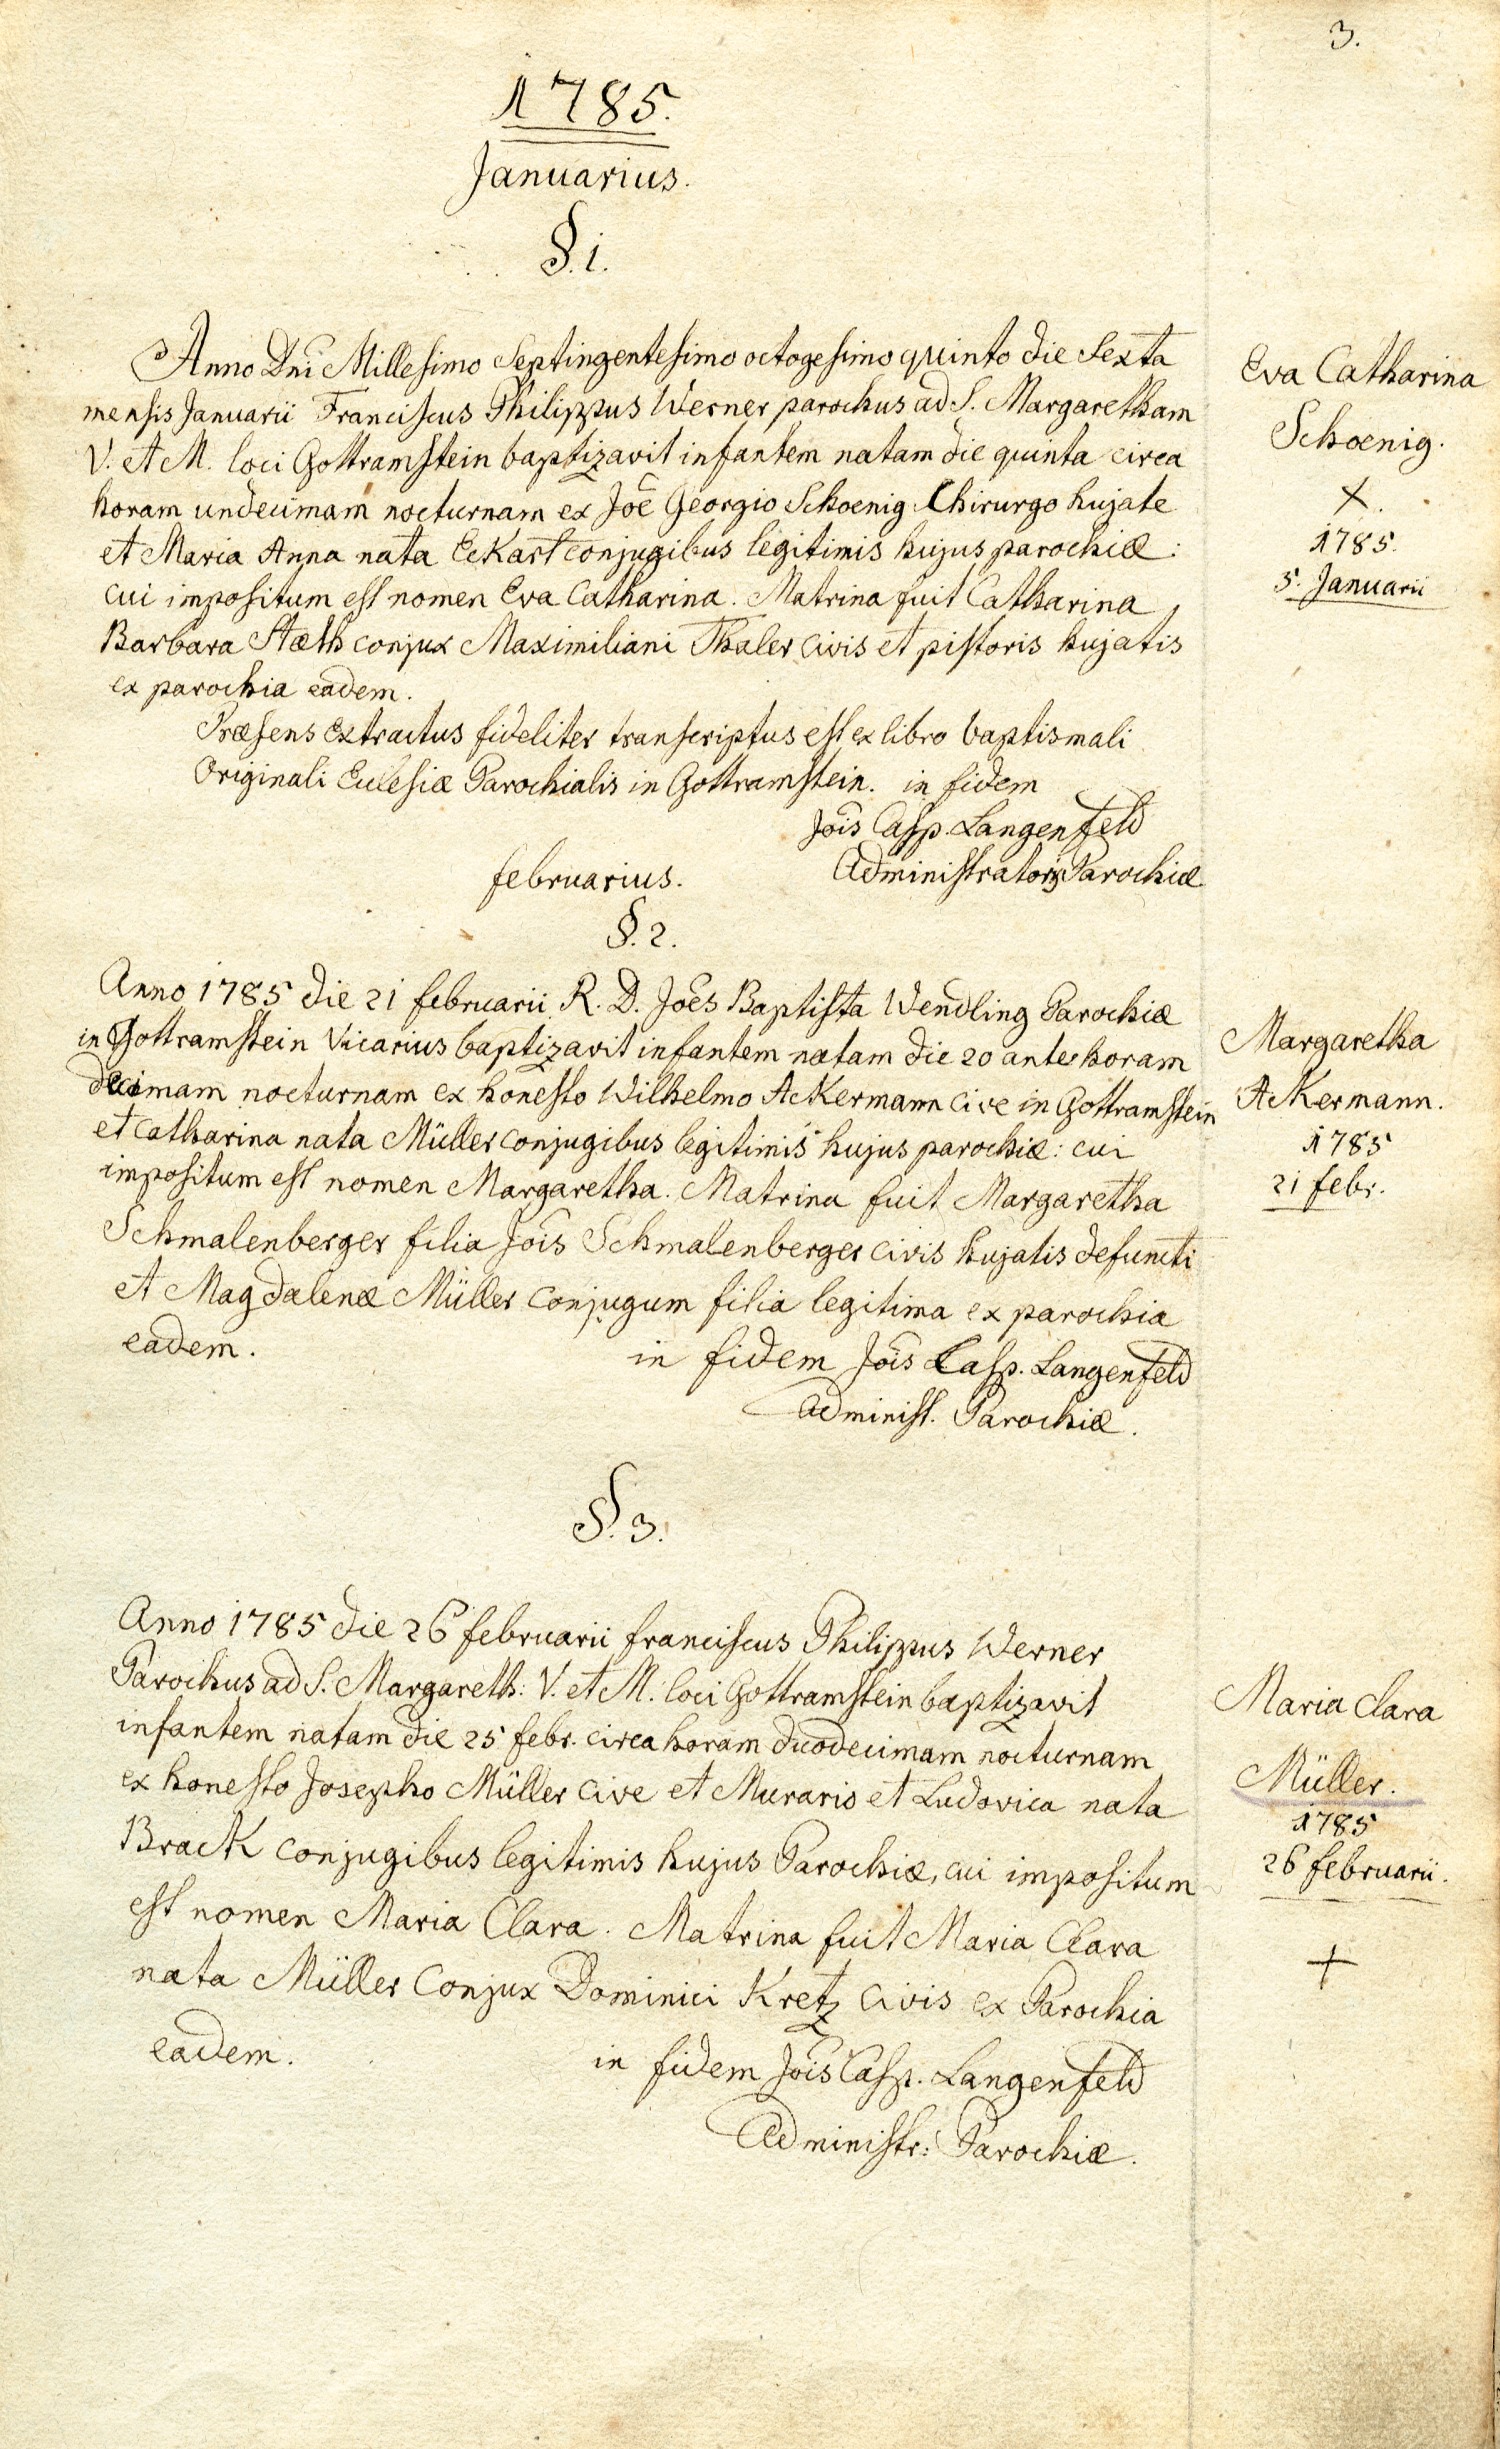 3.
1785.
Januarius.
§. 1.
Anno Dni Millesimo Septingentesimo octogesimo quinto die Sexta
mensis Januarii Franciscus Philippus Werner parochus ad S. Margaretham
V. et M. loci Gottramstein baptizavit infantem natam die quinta circa
horam undecimam nocturnam ex Joe Georgio Schoenig Chirurgo hujate
et Maria Anna nata Eckart conjugibus legitimis hujus parochiæ:
cui impositum est nomen Eva Catharina. Matrina fuit Catharina
Barbara conjux Maximiliani Thaler civis et pistoris hujatis
ex parochia eadem.
Præsens extractus fideliter transcriptus est ex libro baptismali
Originali Eclesiæ Parochialis in Gottramstein. in fidem
Jois Casp. Langenfeld
Administrator Parochiæ
Eva Catharina
Schoenig.
+
1785.
5. Januarii
februarius.
§. 2.
Anno 1785 die 21 februarii R. D. Joes Baptista Wendling Parochiæ
in Gottramstein Vicarius baptizavit infantem natam die 20 ante horam
decimam nocturnam ex honesto Wilhelmo Ackermann cive in Gottramstein
et Catharina nata Müller conjugibus legitimis hujus parochiæ: cui
impositum est nomen Margaretha. Matrina fuit Margaretha
Schmalenberger filia Jois Schmalenberger civis hujatis defuncti
et Magdalenæ Müller conjugum filia legitima ex parochia
eadem.
in fidem Jois Casp. Langenfeld
Administ. Parochiæ.
Margaretha
Ackermann.
1785
21 febr.
§. 3.
Anno 1785 die 26 februarii franciscus Philippus Werner
Parochus ad S. Margareth: V. et M. loci Gottramstein baptizavit
infantem natam die 25 febr. circa horam duodecimam nocturnam
ex honesto Josepho Müller cive et Murario et Ludovica nata
Brack conjugibus legitimis hujus Parochiæ, cui impositum
est nomen Maria Clara. Matrina fuit Maria Clara
nata Müller Conjux Dominici Kretz civis ex Parochia
eadem.
in fidem Jois Casp. Langenfeld
Administr: Parochiæ.
Maria Clara
Müller.
1785
26 februarii.
+